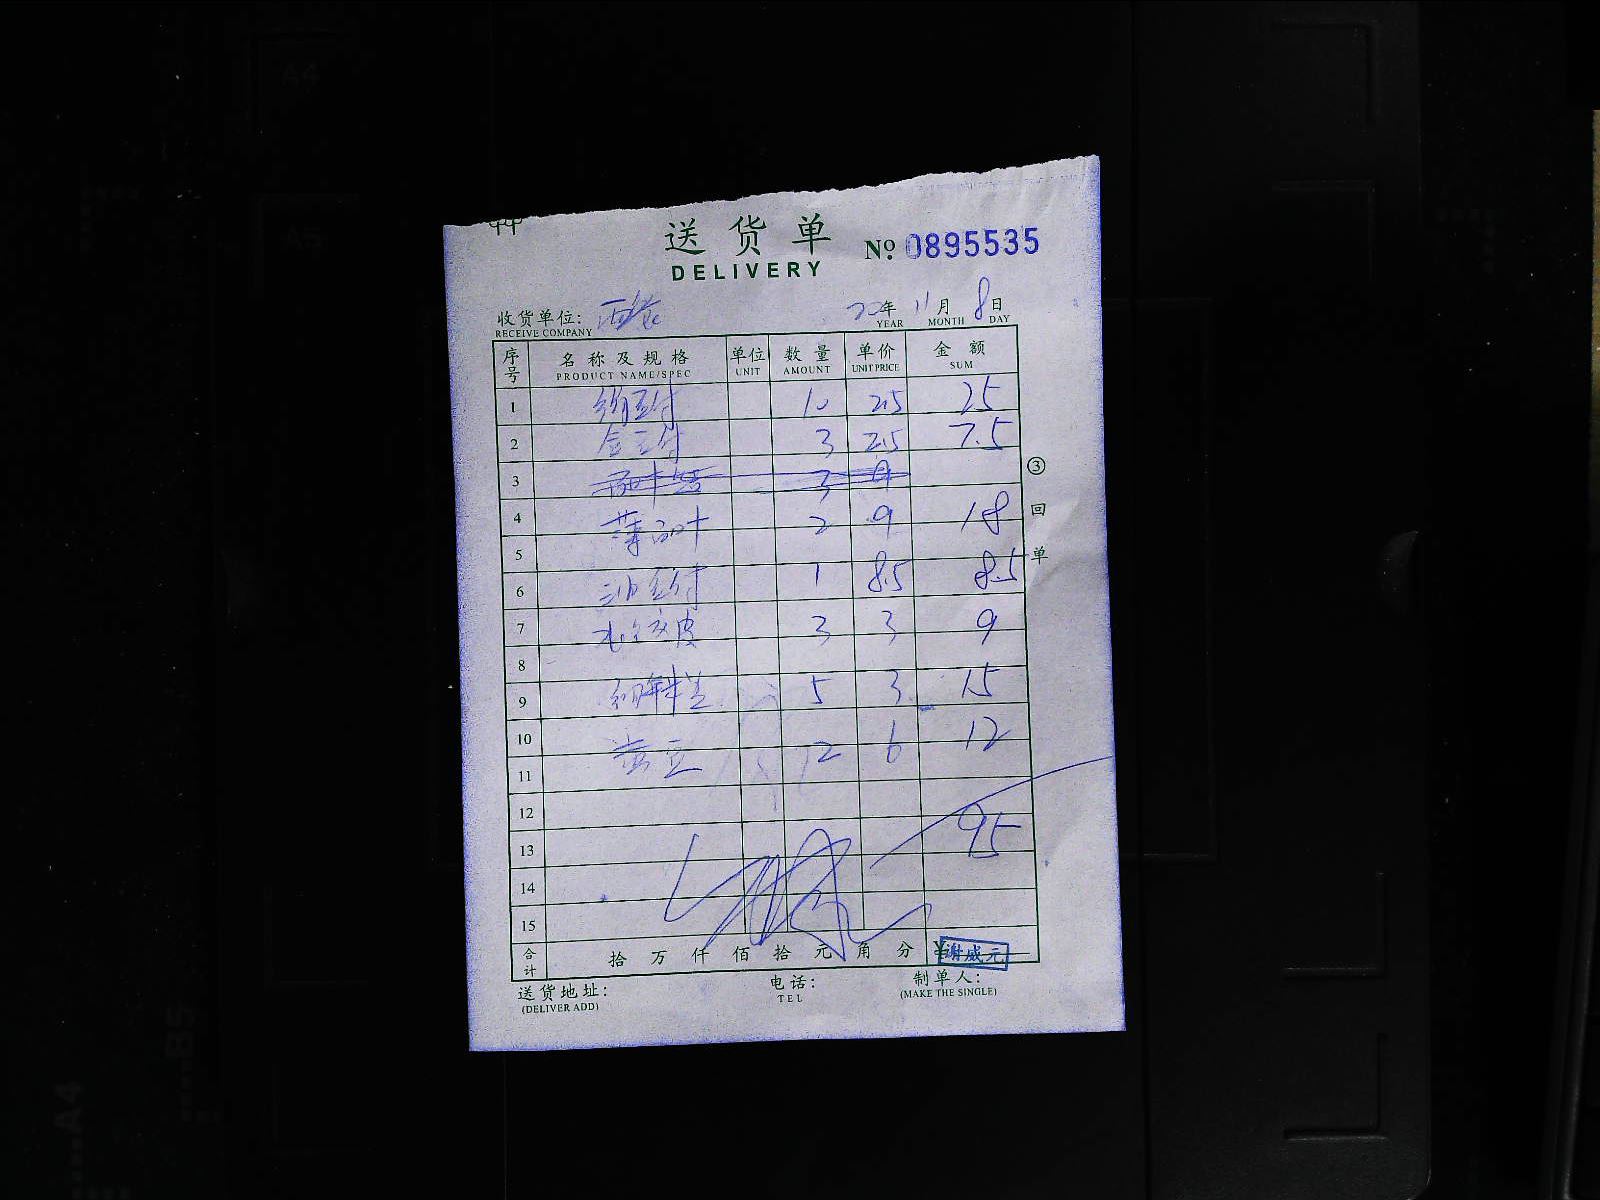 送货单
DELIVERY
№ 0895535
收货单位: 西餐
RECEIVE COMPANY
20年 11月 8日
YEAR MONTH DAY
序号 名称及规格 单位 数量 单价 金额
PRODUCT NAME/SPEC UNIT AMOUNT UNIT PRICE SUM
1 10 2.5 25
2 3 2.5 7.5
3 3
4 2 9 18
5
6 油豆付 1 8.5 8.5
7 3 3 9
8
9 5 3 15
10 黄豆 2 6 12
11
12
13 95
14
15
合计 拾 万 仟 佰 拾 元 角 分 ¥ 谢威元
送货地址:
(DELIVER ADD)
电话:
TEL
制单人:
(MAKE THE SINGLE)
③回单
A4
A5
B5
A4